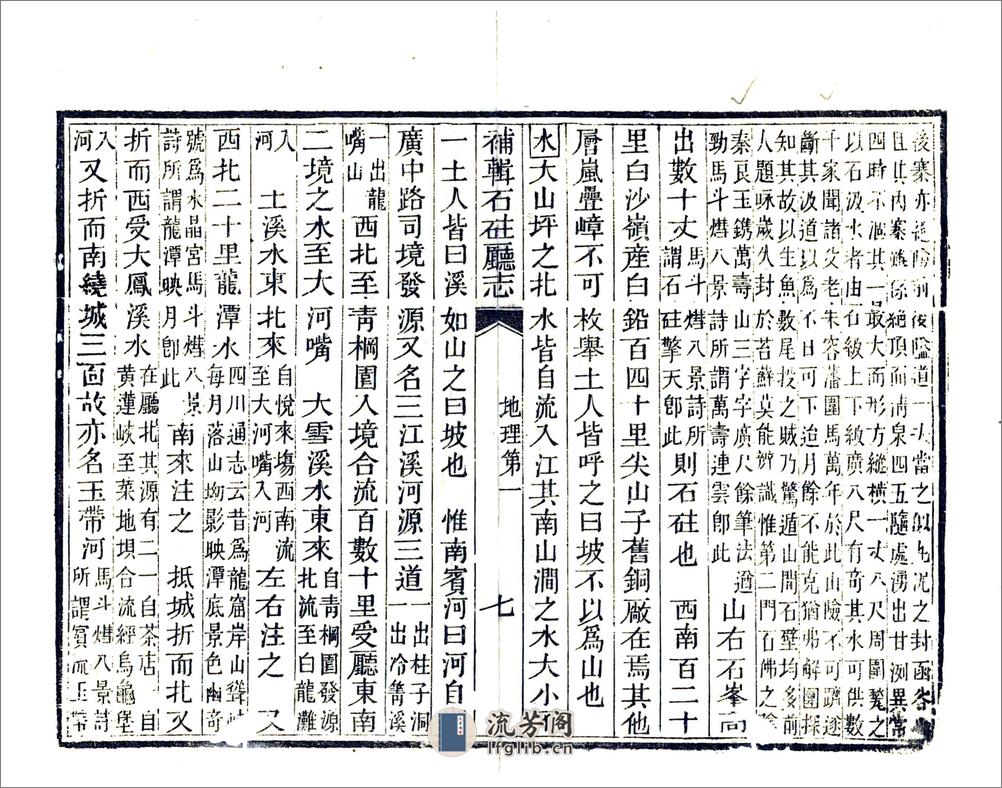 後寨亦趨前後隘道一夫當之似之封函谷
且其內寨係絕頂而清泉四五隨處湧出甘洌異常
四時不涸其一最大而形方縱橫一丈八尺周圍甃之
以石汲水者由石級上下級廣八尺有奇其水可供數
千家聞諸父老朱容藩圍馬萬年於此山險不可躋遂
斷其汲道以爲不日可下迨月餘不能克猶弗解圍探
知其故以生魚數尾投之賊乃驚遁山間石壁均多前
人題咏歲久封於苔蘚莫能辨識惟第二門石佛之陰
秦良玉鐫萬壽山三字字廣尺餘筆法遒
勁馬斗𤏡八景詩所謂萬壽連雲卽此　山右石峯高
出數十丈馬斗𤏡八景詩所謂石砫擎天卽此則石砫也　西南百二十
里白沙嶺產白鉛百四十里尖山子舊銅厰在焉其他
層嵐疊嶂不可枚舉土人皆呼之曰坡不以爲山也
水大山坪之北水皆自流入江其南山澗之水大小
補輯石砫廳志　地理第一　七
一土人皆曰溪如山之曰坡也　惟南賓河曰河自
廣中路司境發源又名三江溪河源三道一出柱子洞一出冷箐溪
一出龍嘴山西北至靑棡園入境合流百數十里受廳東南
二境之水至大河嘴　大雪溪水東來自靑棡園發源北流至白龍灘
入河　土溪水東北來自悅來塲西南流至大河嘴入河左右注之　又
西北二十里龍潭水四川通志云昔爲龍窟岸山聳峙每月落山坳影映潭底景色幽奇
號爲水晶宮馬斗𤏡八景詩所謂龍潭映月卽此南來注之　抵城折而北又
折而西受大鳳溪水在廳北其源有二一自茶店一自黃蓮峽至菜地壩合流經烏龜堡
入河又折而南繞城三面故亦名玉帶河馬斗𤏡八景詩所謂賓河玉帶
流芳阁
lfglib.cn